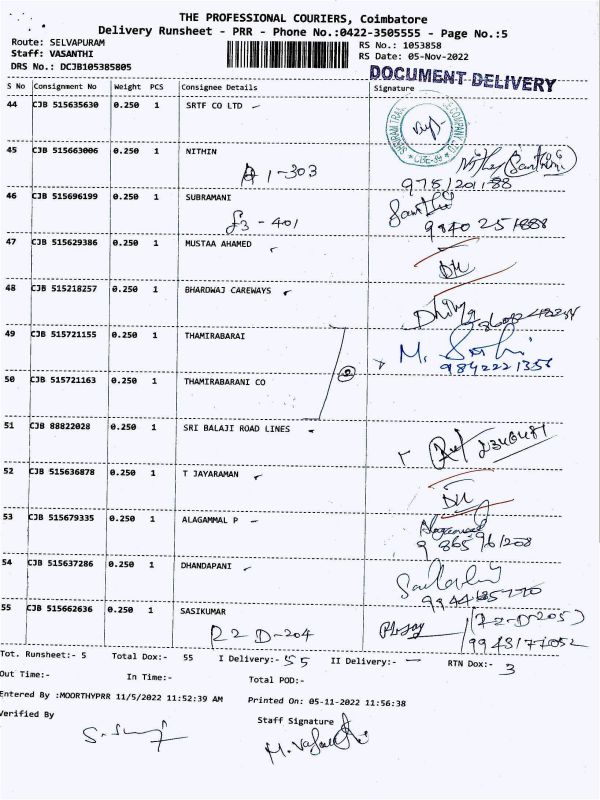 THE PROFESSIONAL COURIERS, Coimbatore
Delivery Runsheet - PRR - Phone No.:0422-3505555 - Page No.:5
Route: SELVAPURAM
RS No.: 1053858
Staff: VASANTHI
RS Date: 05-Nov-2022
DRS No.: DCJB105385805
DOCUMENT DELIVERY
S No Consignment No Weight PCS Consignee Details Signature
44 CJB 515635630 0.250 1 SRTF CO LTD
45 CJB 515663006 0.250 1 NITHIN
A 1-303
46 CJB 515696199 0.250 1 SUBRAMANI
f3 - 401
9840 251888
47 CJB 515629386 0.250 1 MUSTAA AHAMED
DM
48 CJB 515218257 0.250 1 BHARDWAJ CAREWAYS
49 CJB 515721155 0.250 1 THAMIRABARAI
9842221356
2
50 CJB 515721163 0.250 1 THAMIRABARANI CO
51 CJB 88822028 0.250 1 SRI BALAJI ROAD LINES
2346481
52 CJB 515636878 0.250 1 T JAYARAMAN
DM
53 CJB 515679335 0.250 1 ALAGAMMAL P
9 865 961208
54 CJB 515637286 0.250 1 DHANDAPANI
55 CJB 515662636 0.250 1 SASIKUMAR
R2 D-204
Tot. Runsheet:- 5 Total Dox:- 55 I Delivery:- 55 II Delivery:- — RTN Dox:- 3
Out Time:- In Time:- Total POD:-
Entered By :MOORTHYPRR 11/5/2022 11:52:39 AM Printed On: 05-11-2022 11:56:38
Verified By Staff Signature